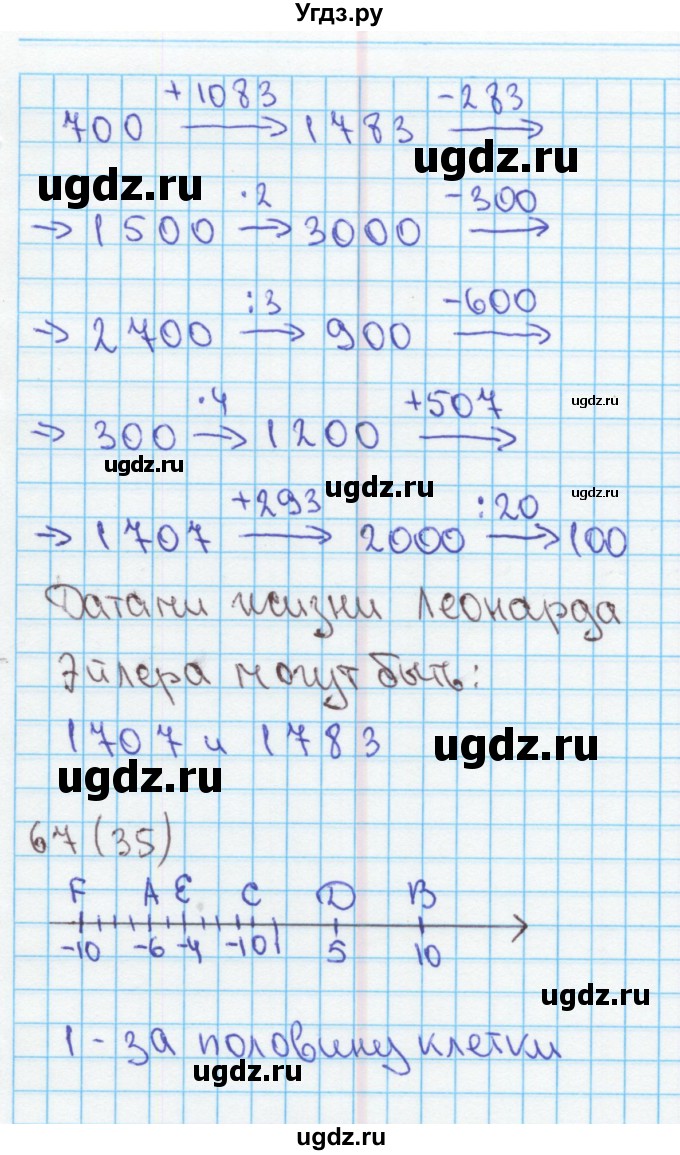 Угдз.ру
+1083 -283
700 → 1783 →
ugdz.ru ugdz.ru
·2 -300
→ 1500 → 3000 →
:3 -600
→ 2700 → 900 →
·4 +507 ugdz.ru
→ 300 → 1200 →
ugdz.ru ugdz.ru
+293 :20 ugdz.ru
→ 1707 → 2000 → 100
Датами жизни Леонарда
Эйлера могут быть:
1707 и 1783 ugdz.ru
ugdz.ru
67 (35)
F A E C D B
-10 -6 -4 -1 0 1 5 10
ugdz.ru
1 - за половину клетки
ugdz.ru
ugdz.ru